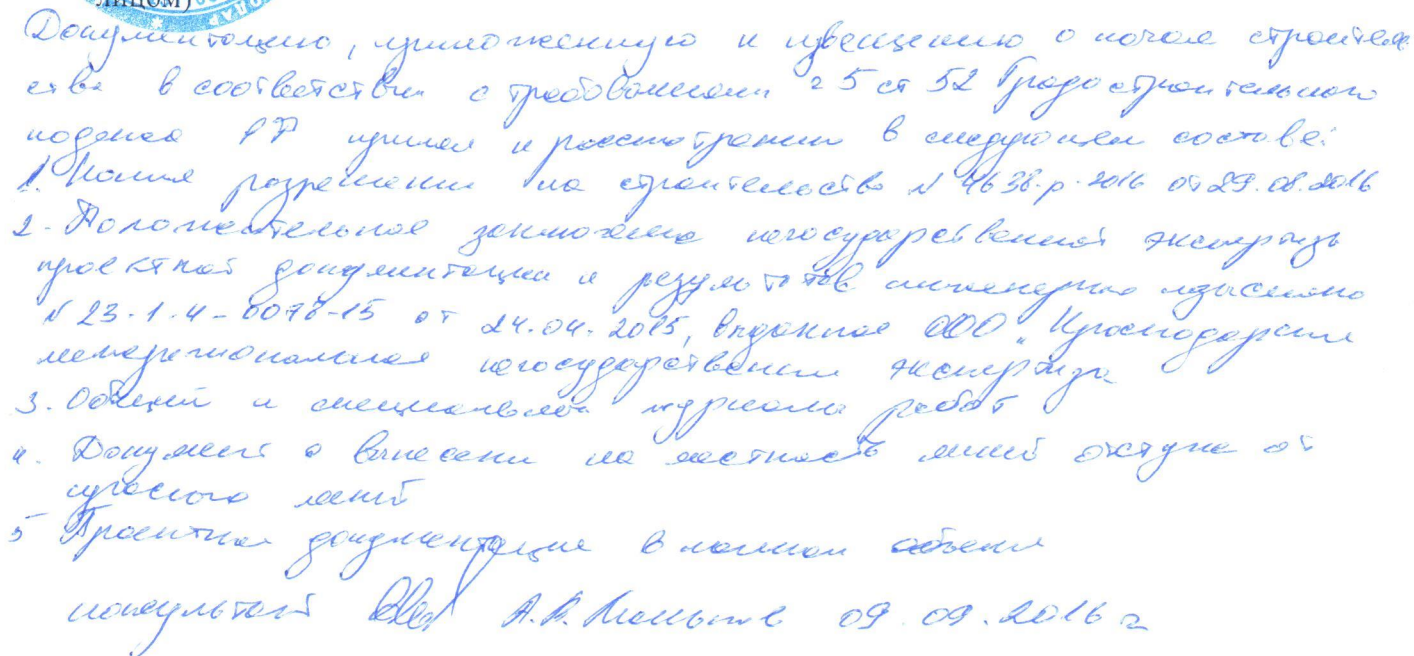 лицом)
Документацию, приложенную к извещению о начале строитель
ства в соответствии с требованиями ч 5 ст 52 Градостроительного
кодекса РФ принял к рассмотрению в следующем составе:
1. Копия разрешения на строительство N 4638-р-2016 от 29.08.2016
2. Положительное заключение негосударственной экспертизы
проектной документации и результатов инженерных изысканий
N 23-1-4-0078-15 от 24.04.2015, выданное ООО "Краснодарская
межрегиональная негосударственная экспертиза
3. Общий и специальный журналы работ
4. Документ о вынесении на местность линий отступа от
красных линий
5 Проектная документация в полном объеме
консультант А.В. 09.09.2016 г